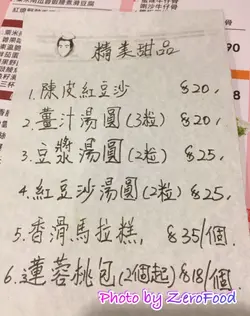 精美甜品
1.陳皮紅豆沙 $20,
2.薑汁湯圓(3粒) $20,
3.豆漿湯圓(2粒) $25,
4.紅豆沙湯圓(2粒) $25,
5.香滑馬拉糕, $35/個.
6.蓮蓉桃包(2個起) $18/個.
Photo by ZeroFood